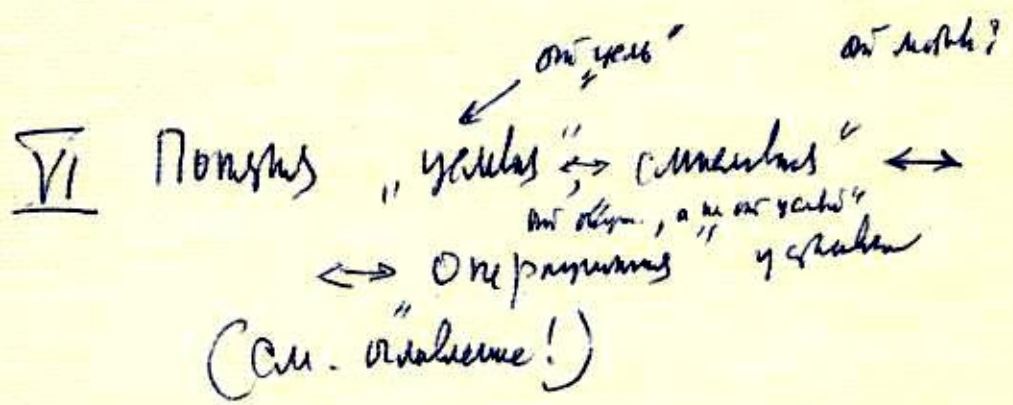 от „цель" от мотив?
VI Понятия „целевая" ↔ смысловая" ↔
от опер., а не от условий"
↔ „Операционная" установки
(см. оглавление!)